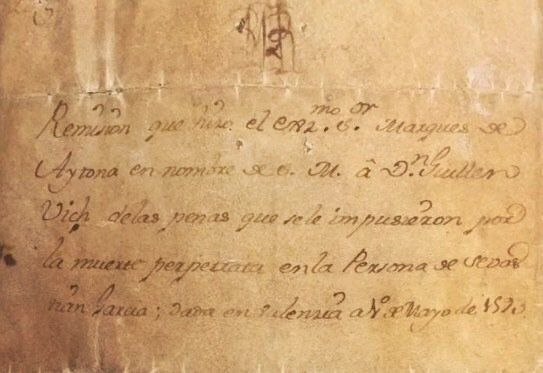 29
Remision que hizo el Exmo. Sor. Marques de
Aytona en nombre de S. M. â Dn. Guillen
Vich delas penas que sele impusieron por
la muerte perpetrata en la Persona de Sebas
tian Garcia; dada en Valencia a 1º de Mayo de